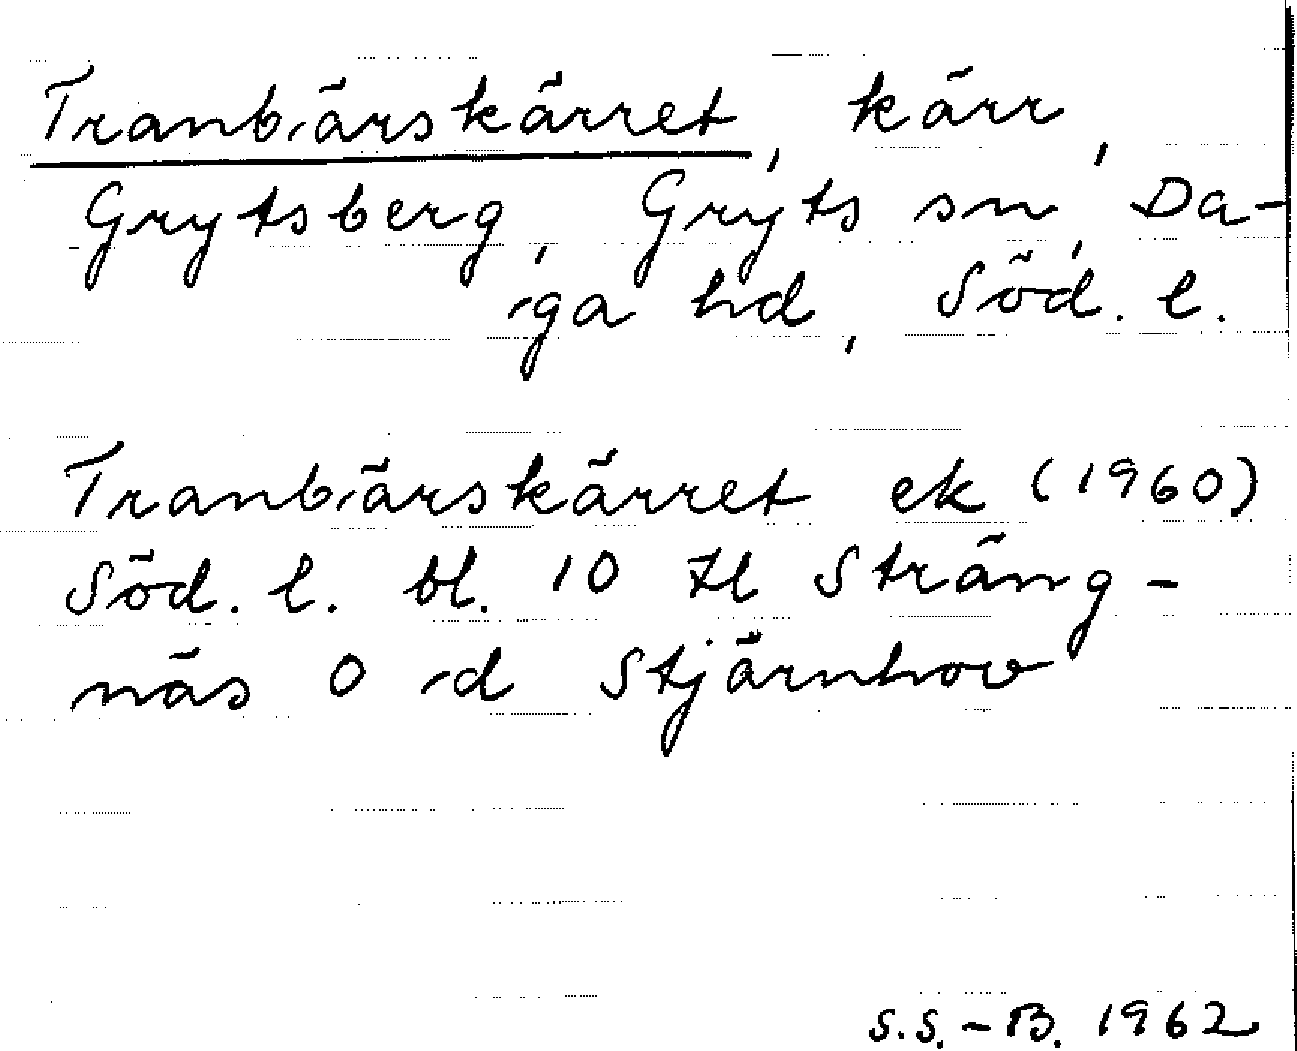 Tranbärskärret, kärr,
Grytsberg, Gryts sn, Da-
ga hd, Söd. l.
Tranbärskärret ek (1960)
Söd. l. bl. 10 tl Sträng-
näs O d Stjärnhov
S.S.-B. 1962